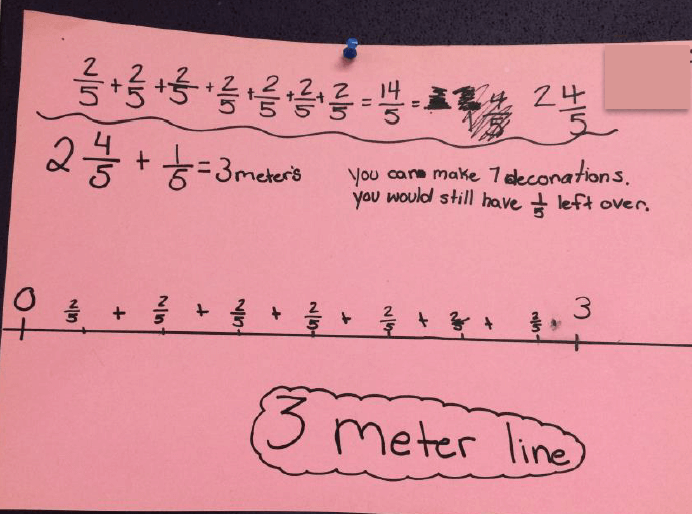 2/5 + 2/5 + 2/5 + 2/5 + 2/5 + 2/5 + 2/5 = 14/5 = 2 4/5
2 4/5 + 1/5 = 3 meters
you can make 7 deconations.
you would still have 1/5 left over.
0 2/5 + 2/5 + 2/5 + 2/5 + 2/5 + 2/5 + 2/5 3
3 meter line